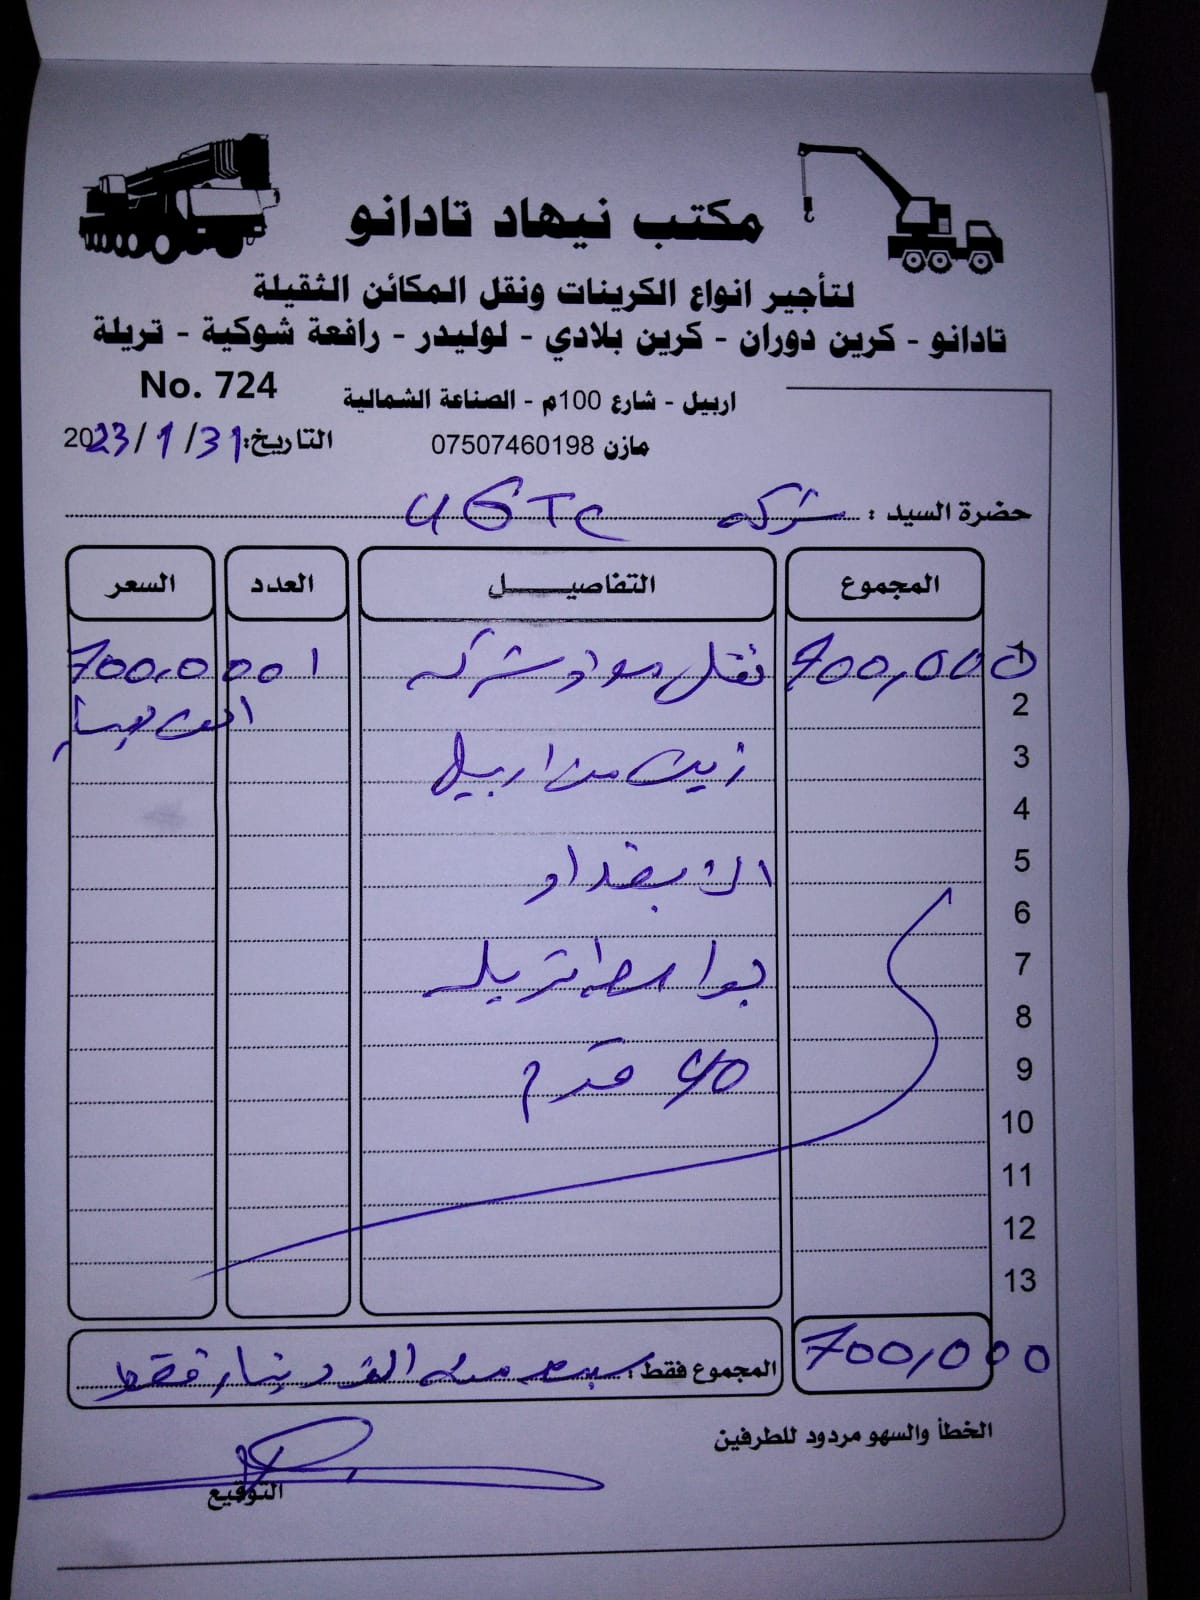 مكتب نيهاد تادانو
لتأجير انواع الكرينات ونقل المكائن الثقيلة
تادانو - كرين دوران - كرين بلادي - لوليدر - رافعة شوكية - تريلة
No. 724
اربيل - شارع 100م - الصناعة الشمالية
التاريخ: 31/ 1 / 2023
مازن 07507460198
حضرة السيد : شركه UGTC
المجموع التفاصيـــــل العدد السعر
1 700,000 نقل مواد شركه 1 700,000
2 الف دينار
3 زيت من اربيل
4
5 الى بغداد
6
7 بواسطه تريله
8
9 40 قدم
10
11
12
13
700,000 المجموع فقط : سبعمئه الف دينار فقط
الخطأ والسهو مردود للطرفين
التوقيع